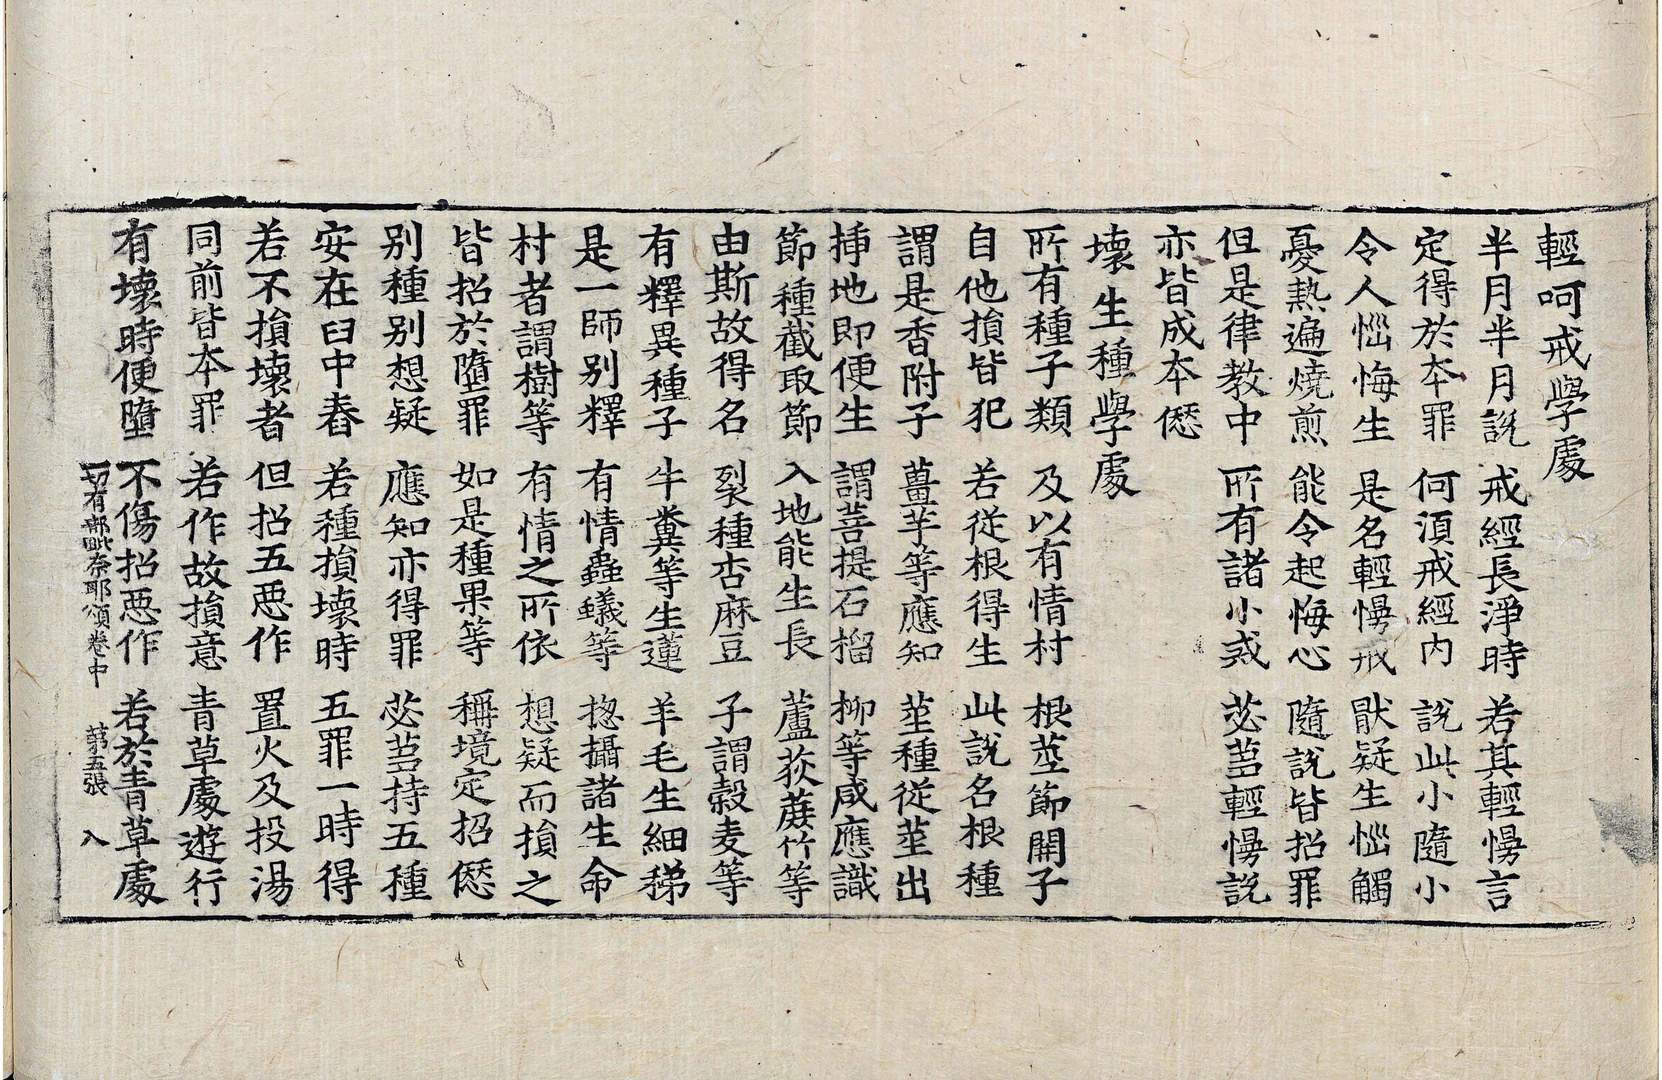 輕呵戒學處
半月半月說　戒經長淨時　若其輕慢言
定得於夲罪　何湏戒經內　說此小隨小
令人惱悔生　是名輕慢戒　猒疑生惱觸
憂熱遍燒煎　能令起悔心　隨說皆招罪
但是律教中　所有諸小戒　苾芻輕慢說
亦皆成夲愆
壞生種學處
所有種子類　及以有情村　根莖節開子
自他損皆犯　若從根得生　此說名根種
謂是香附子　薑芋等應知　莖種從莖出
揷地即便生　謂菩提石榴　柳等咸應識
節種截取節　入地能生長　蘆荻蔗竹等
由斯故得名　裂種杏麻豆　子謂穀麦等
有釋異種子　牛糞等生蓮　羊毛生細稊
是一師別釋　有情蟲蟻等　揔攝諸生命
村者謂樹等　有情之所依　想疑而損之
皆招於墮罪　如是種果等　稱境定招愆
別種別想疑　應知亦得罪　苾芻持五種
安在臼中舂　若種損壞時　五罪一時得
若不損壞者　但招五惡作　置火及投湯
同前皆夲罪　若作故損意　青草處遊行
有壞時便墮　不傷招惡作　若於青草處
一切有部毗奈耶頌卷中　第五張　入